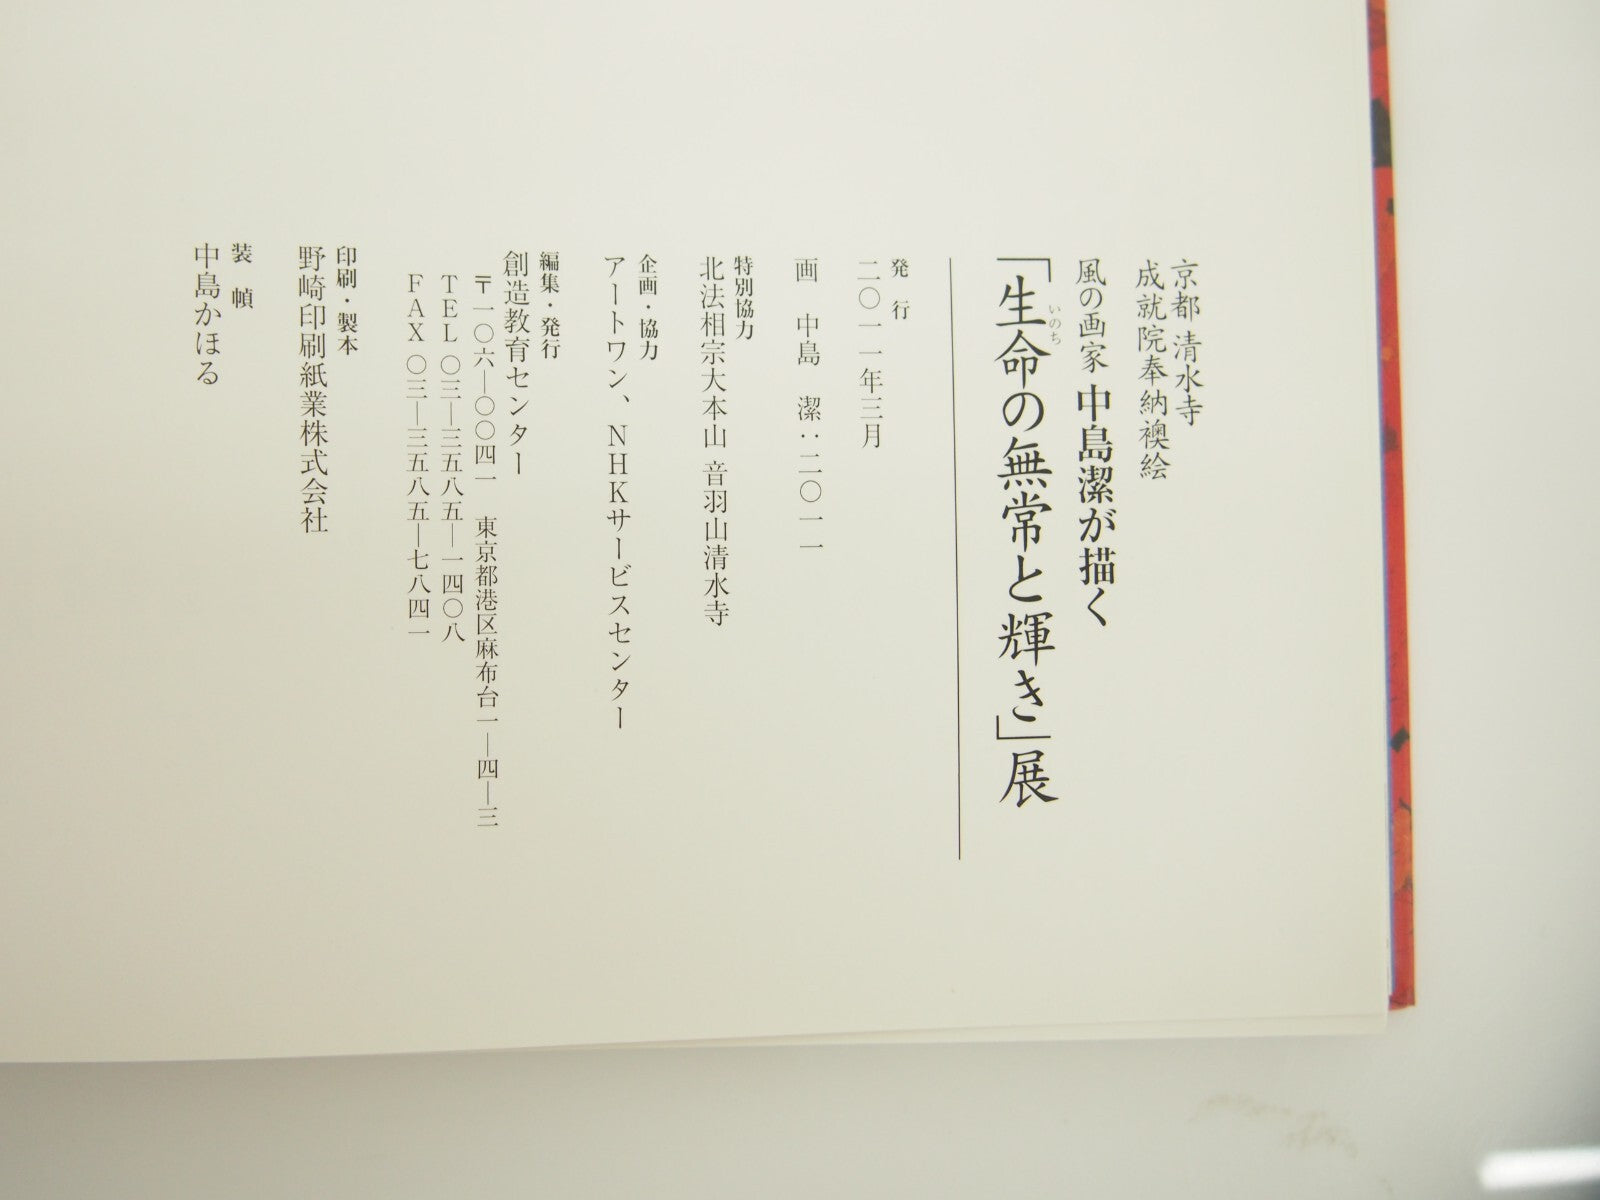 京都 清水寺
成就院奉納襖絵
風の画家 中島潔が描く
「生命の無常と輝き」展
いのち
発行
二〇一一年三月
画 中島 潔:二〇一一
特別協力
北法相宗大本山 音羽山清水寺
企画・協力
アートワン、NHKサービスセンター
編集・発行
創造教育センター
〒一〇六―〇〇四一 東京都港区麻布台一―四―三
TEL〇三―三五八五―一四〇八
FAX〇三―三五八五―七八四一
印刷・製本
野崎印刷紙業株式会社
装幀
中島かほる